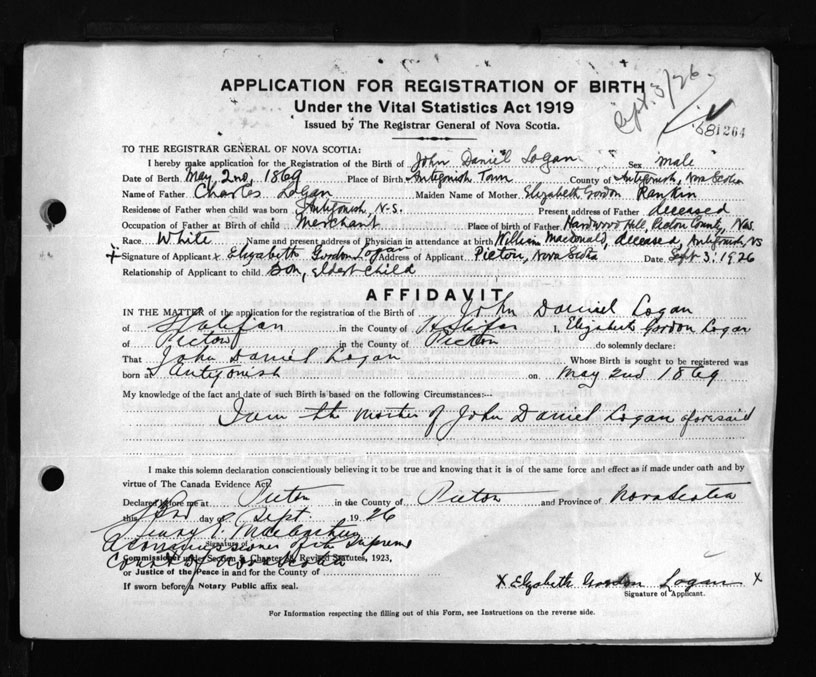 APPLICATION FOR REGISTRATION OF BIRTH
Under the Vital Statistics Act 1919
Issued by The Registrar General of Nova Scotia.
Sept. 3/26
681264
TO THE REGISTRAR GENERAL OF NOVA SCOTIA:
I hereby make application for the Registration of the Birth of John Daniel Logan Sex male
Date of Birth May 2nd, 1869 Place of Birth Antigonish Town County of Antigonish, Nova Scotia
Name of Father Charles Logan Maiden Name of Mother Elizabeth Gordon Rankin
Residense of Father when child was born Antigonish, N-S. Present address of Father deceased
Occupation of Father at Birth of child Merchant Place of birth of Father Hardwood Hill, Pictou County, N.S.
Race White Name and present address of Physician in attendance at birth William Macdonald, deceased, Antigonish, NS
Signature of Applicant x Elizabeth Gordon Logan Address of Applicant Pictou, Nova Scotia Date Sept 3, 1926
Relationship of Applicant to child Son, eldest child
AFFIDAVIT
IN THE MATTER of the application for the registration of the Birth of John Daniel Logan
of Halifax in the County of Halifax I, Elizabeth Gordon Logan
of Pictou in the County of Pictou do solemnly declare:
That John Daniel Logan Whose Birth is sought to be registered was
born at Antigonish on May 2nd 1869
My knowledge of the fact and date of such Birth is based on the following Circumstances:--
I am the mother of John Daniel Logan aforesaid
I make this solemn declaration conscientiously believing it to be true and knowing that it is of the same force and effect as if made under oath and by
virtue of The Canada Evidence Act.
Declared before me at Pictou in the County of Pictou and Province of Nova Scotia
this day of Sept. 1926
Signature of
A Commissioner of the Supreme
Commissioner under Section 8, Chapter Revised Statutes, 1923,
Court of Nova Scotia
or Justice of the Peace in and for the County of
If sworn before a Notary Public affix seal.
x Elizabeth Gordon Logan x
Signature of Applicant.
For Information respecting the filling out of this Form, see Instructions on the reverse side.